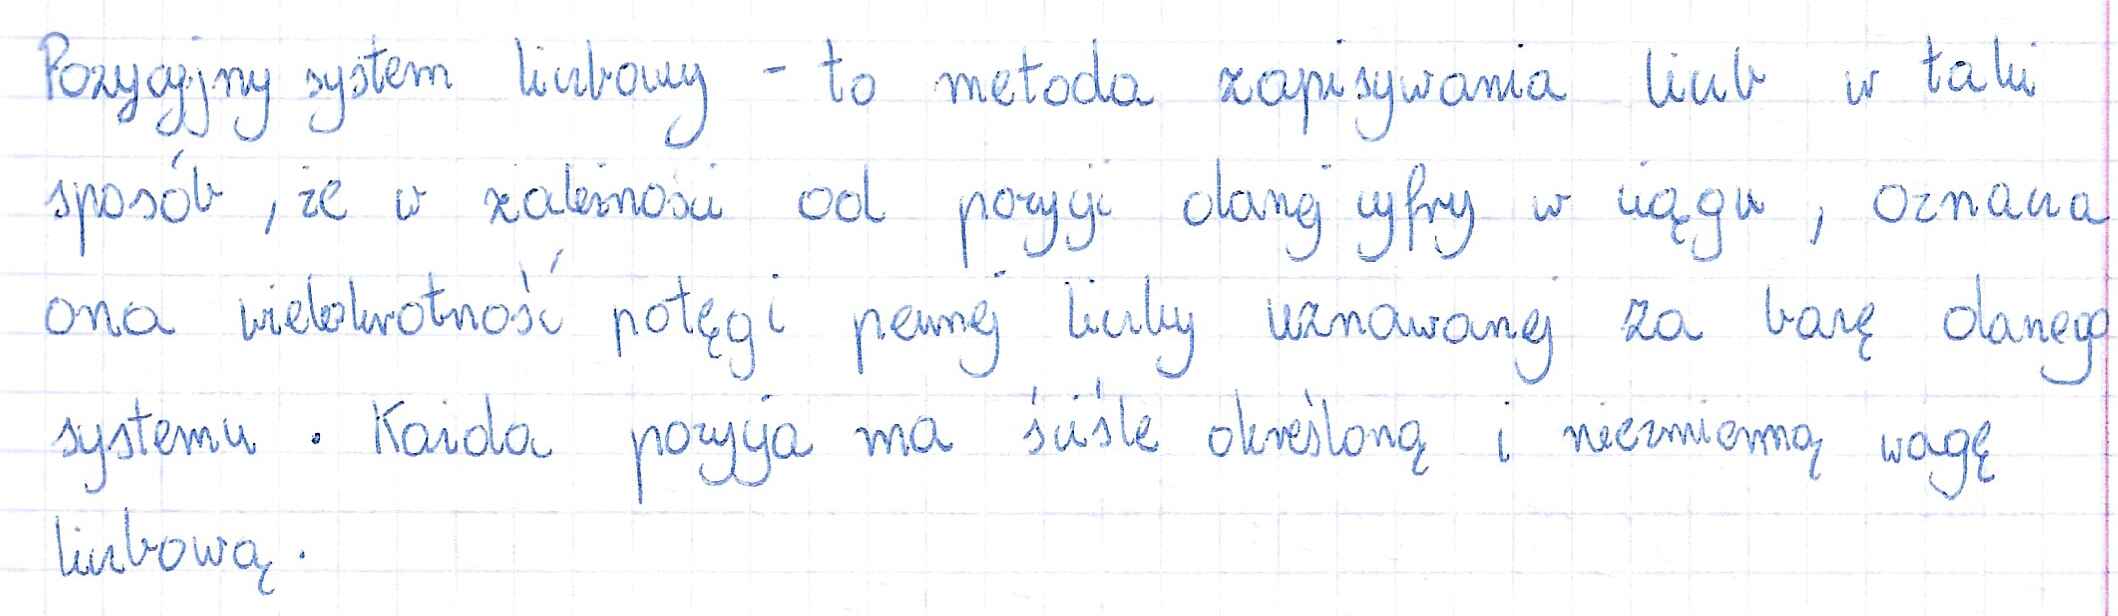 Pozycyjny system liczbowy - to metoda zapisywania liczb w taki
sposób, że w zależności od pozycji danej cyfry w ciągu, oznacza
ona wielokrotność potęgi pewnej liczby uznawanej za bazę danego
systemu. Każda pozycja ma ściśle określoną i niezmienną wagę
liczbową.